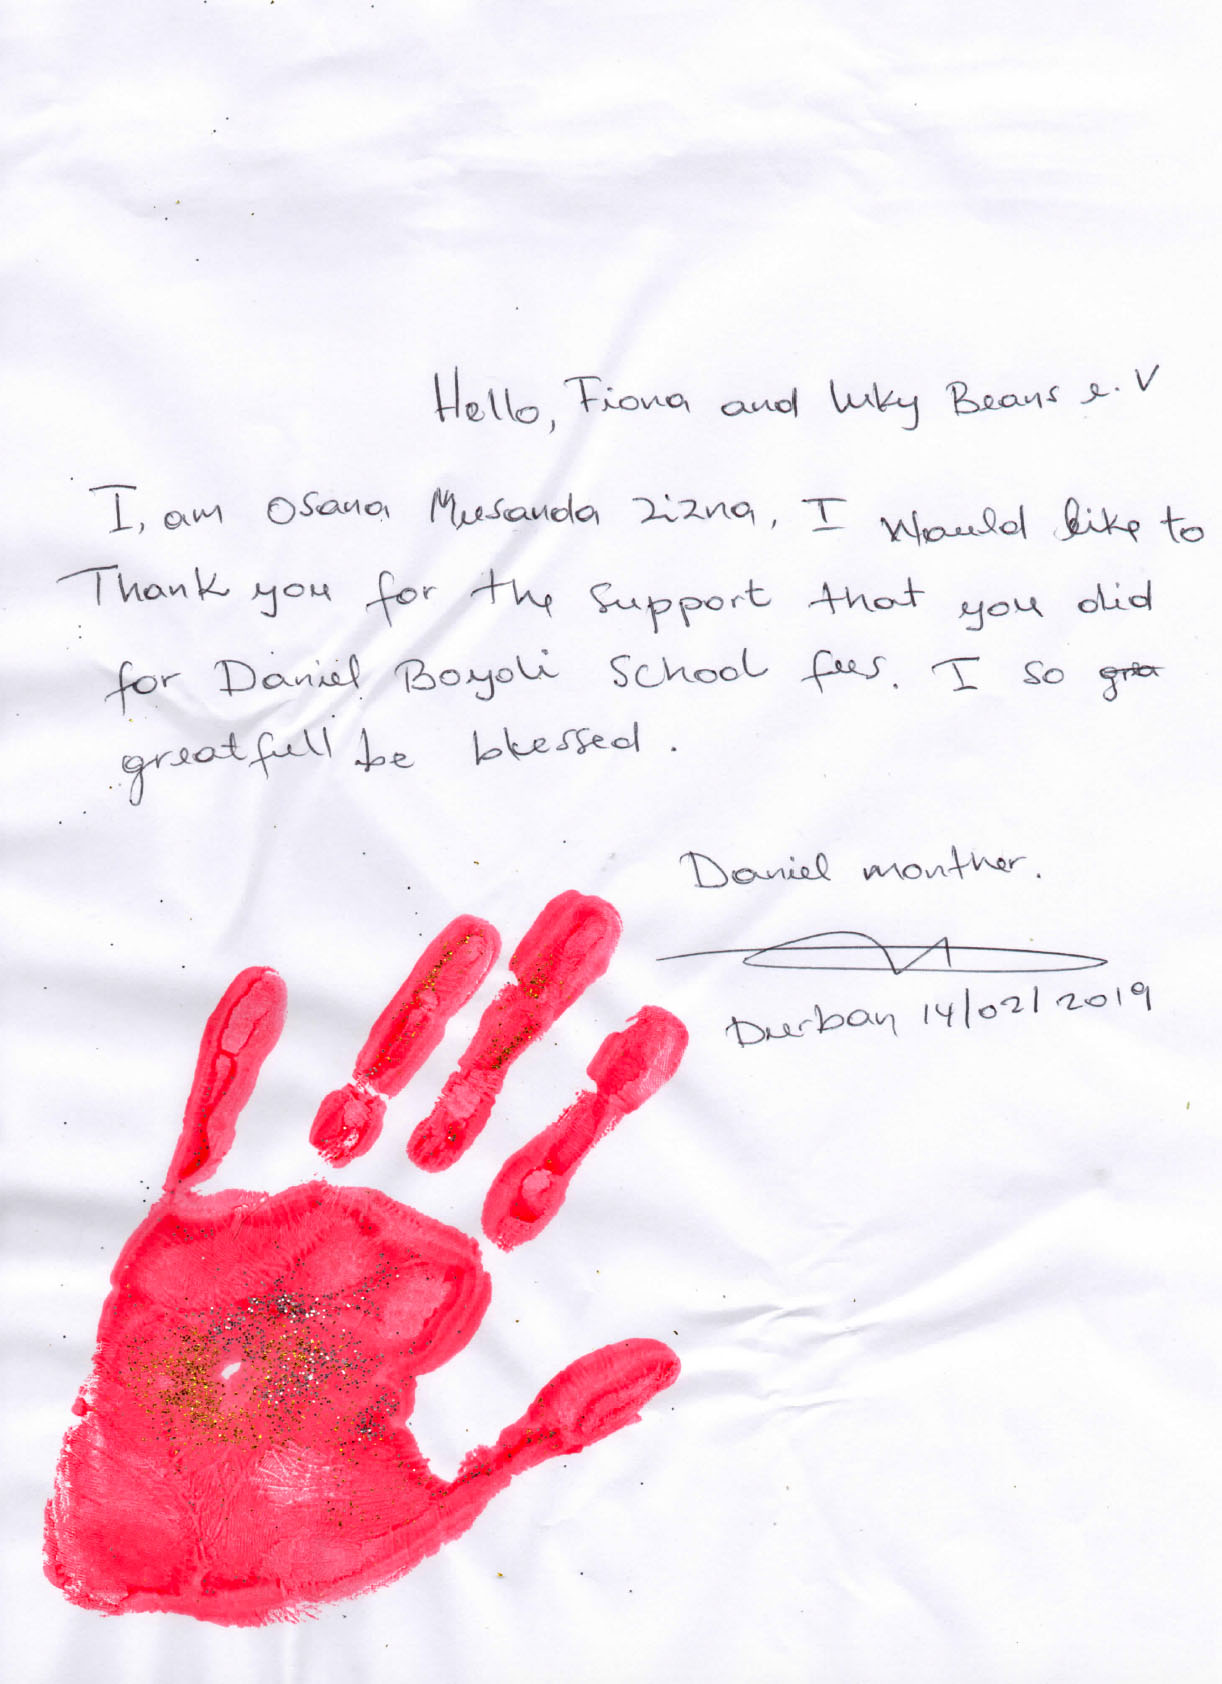 Hello, Fiona and luky Beans e.V
I, am Osana Musanda zizna, I would like to
Thank you for the support that you did
for Daniel Boyoli School fees. I so grea
greatfull be blessed.
Daniel monther.
Durban 14/02/2019